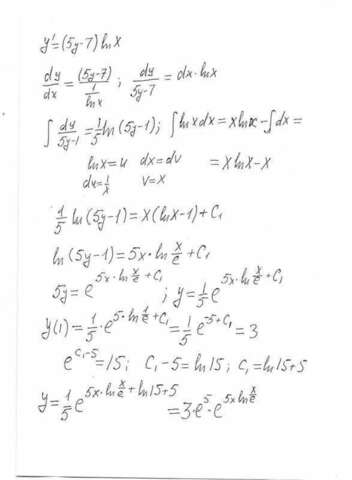 y' = (5y-7) ln x
dy/dx = (5y-7)/(1/ln x) ; dy/(5y-7) = dx · ln x
∫ dy/(5y-1) = 1/5 ln (5y-1); ∫ ln x dx = x ln x - ∫ dx =
ln x = u dx = dv = x ln x - x
du = 1/x v = x
1/5 ln (5y-1) = x (ln x - 1) + C₁
ln (5y-1) = 5x · ln x/e + C₁
5y = e^(5x · ln x/e + C₁) ; y = 1/5 e^(5x · ln x/e + C₁)
y(1) = 1/5 · e^(5 · ln 1/e + C₁) = 1/5 e^(-5 + C₁) = 3
e^(C₁-5) = 15; C₁ - 5 = ln 15; C₁ = ln 15 + 5
y = 1/5 e^(5x · ln x/e + ln 15 + 5) = 3 · e^5 · e^(5x ln x/e)